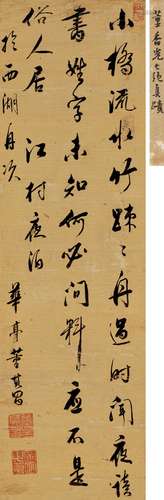 董香光七絕真蹟
小橋流水竹踈〻舟過時聞夜讀
書姓字未知何必問料應不是
俗人居 江村夜泊
於西湖舟次 華亭董其昌